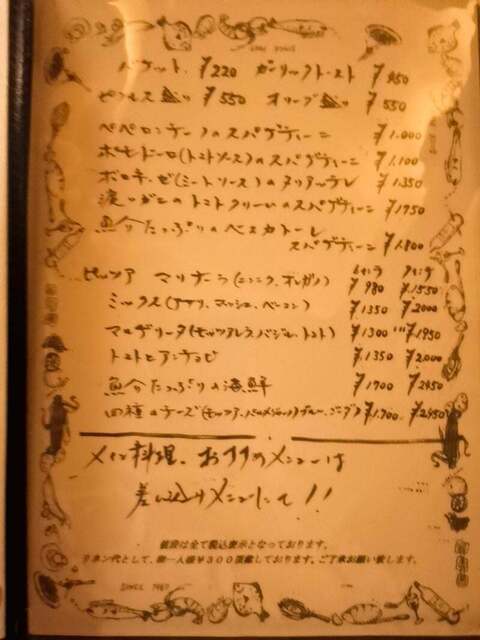 バケット ¥220 ガーリックトースト ¥450
ピクルス盛り ¥550 オリーブ盛り ¥550
ペペロンチーノのスパゲティーニ ¥1.000
ポモドーロ(トマトソース)のスパゲティーニ ¥1.100
ボロネーゼ(ミートソース)のタリアッテレ ¥1.350
渡りガニのトマトクリームのスパゲティーニ ¥1950
魚介たっぷりのペスカトーレ
スパゲティーニ ¥1.800
ピッツァ マリナーラ(ニンニク、オレガノ) ¥980 ¥1550
ミックス(サラミ、マッシュ、ベーコン) ¥1350 ¥2000
マルゲリータ(モッツアレラ、バジル、トマト) ¥1300 ¥1950
トマトとアンチョビ ¥1.350 ¥2.000
魚介たっぷりの海鮮 ¥1900 ¥2450
四種のチーズ ¥1.700 ¥2450
メイン料理、おすすめメニューは
差し込みメニューにて!!
値段は全て税込表示となっております。
リネン代として、御一人様¥300頂戴しております。ご了承お願い致します。